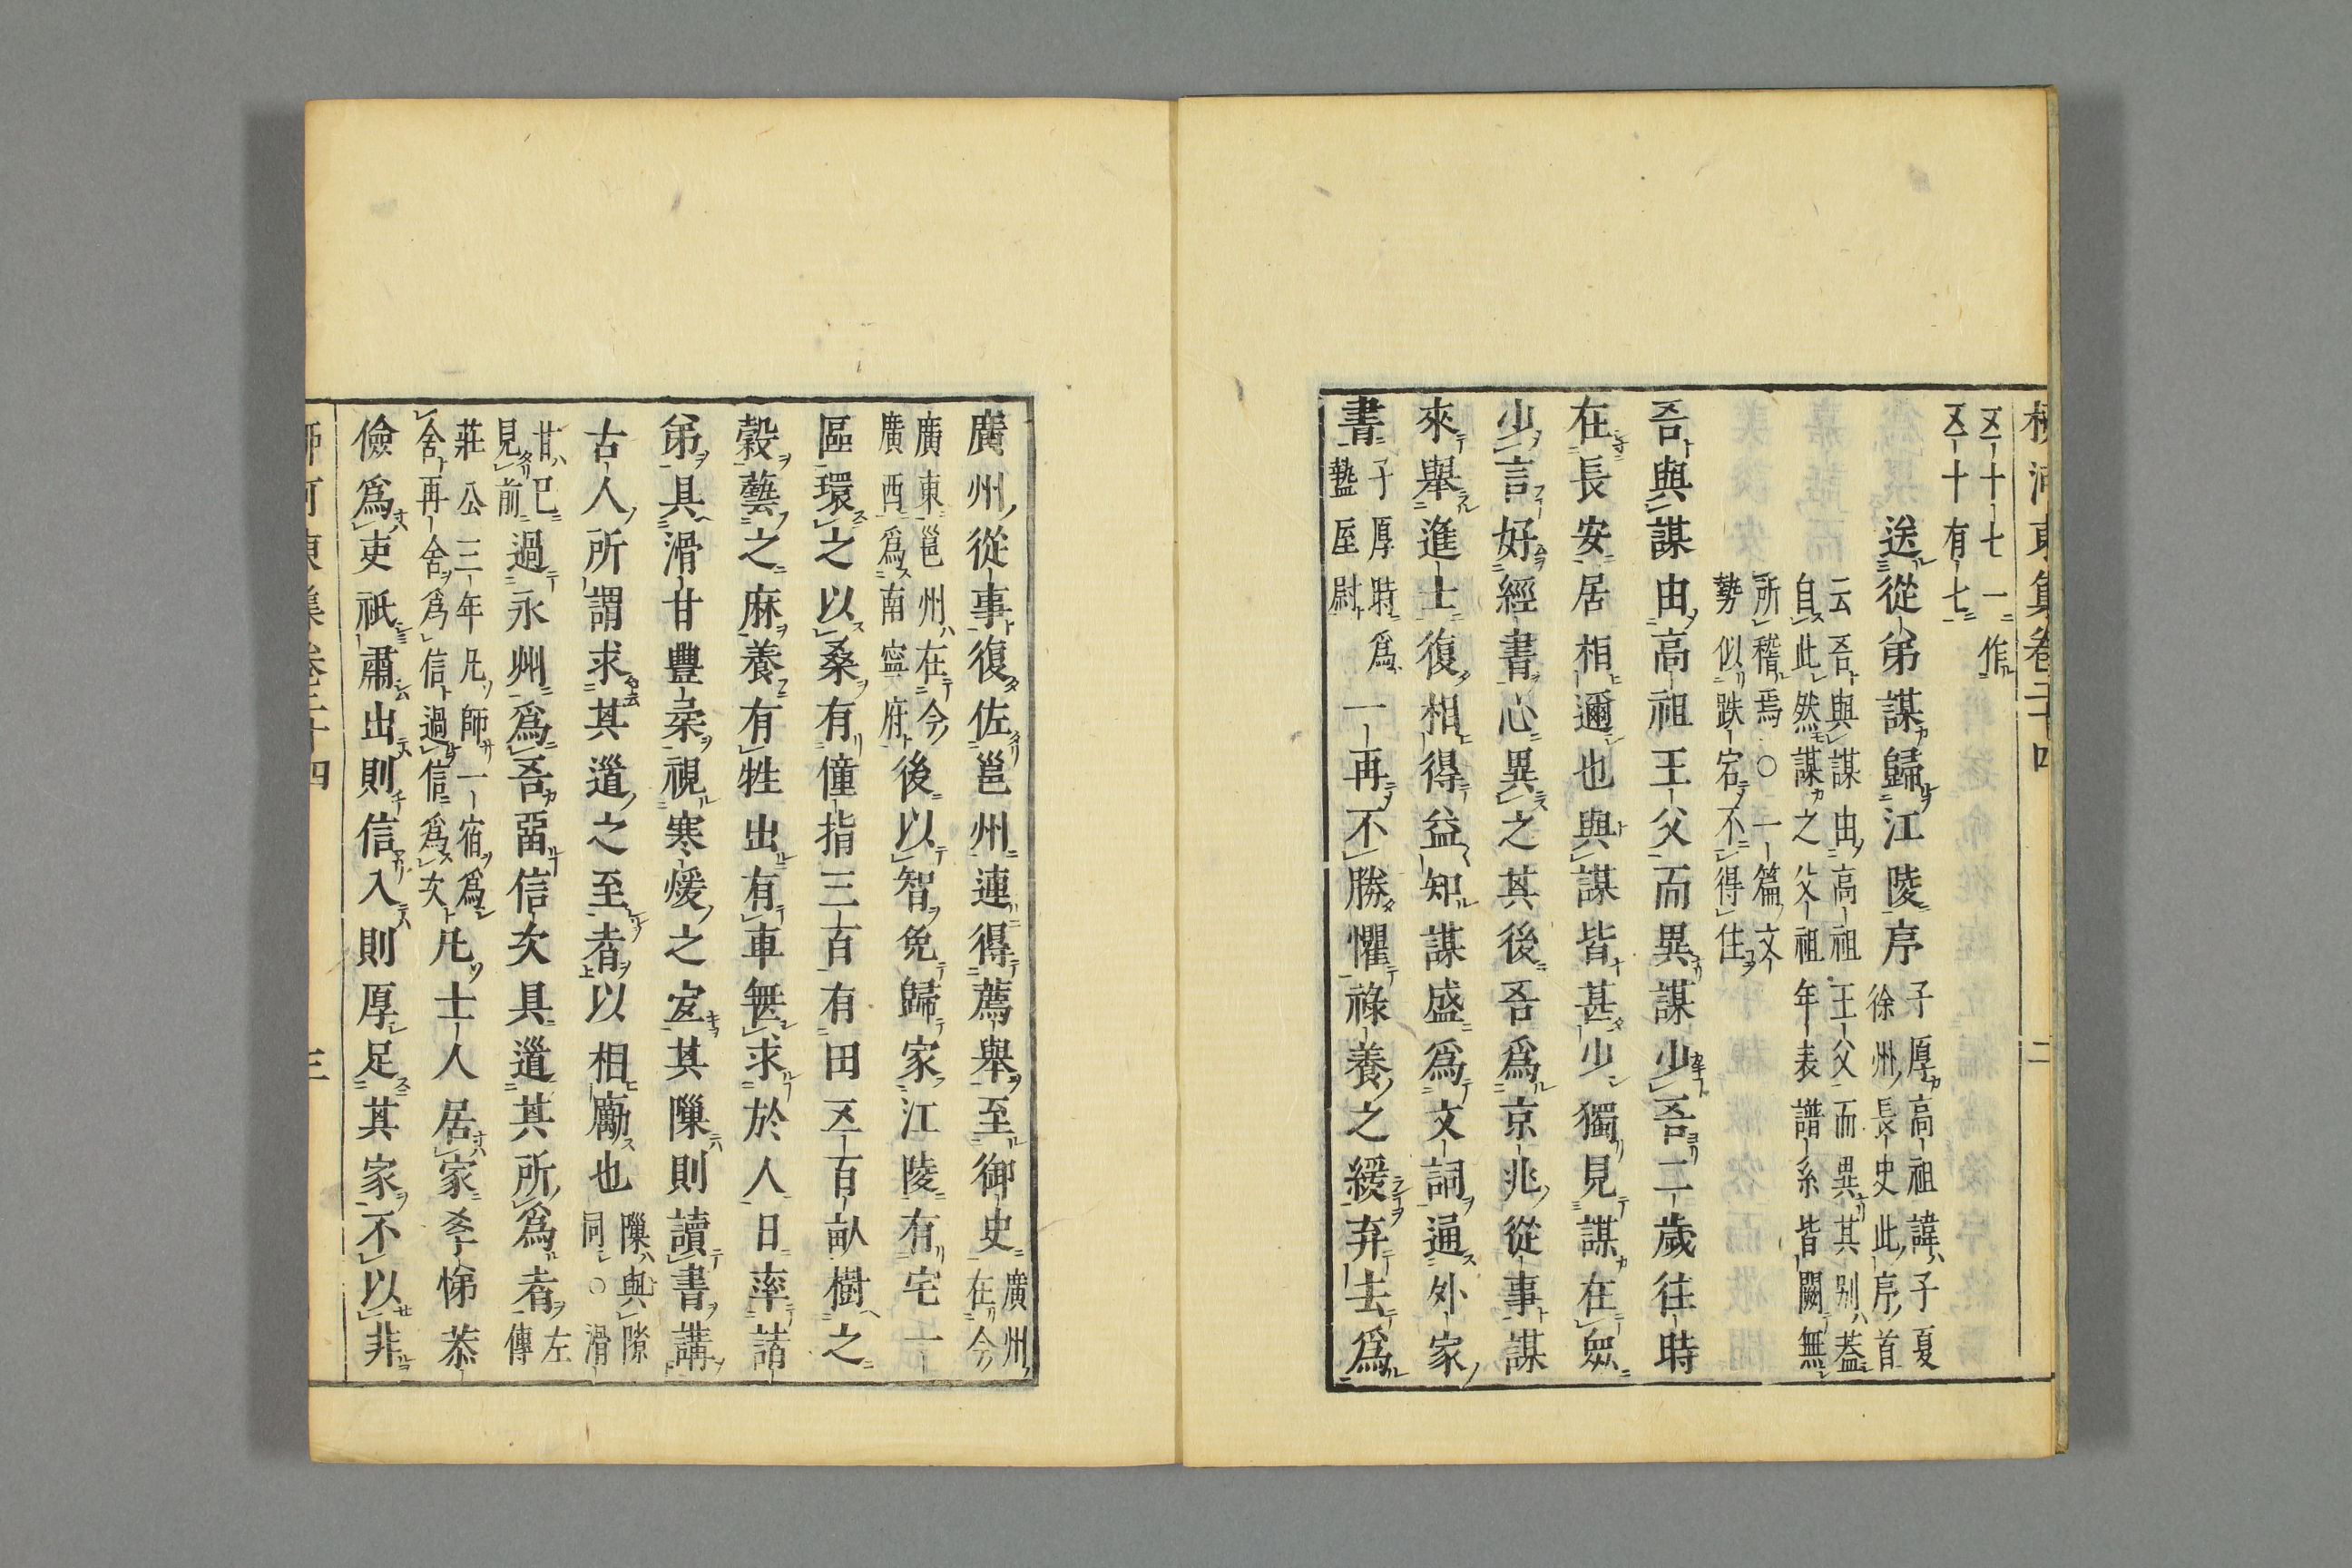 柳河東集卷二十四 二
五十七一作
五十有七
送從弟謀歸江陵序
子厚高祖諱子夏
徐州長史此序首
云吾與謀由高祖王父而異其别蓋
自此然謀之父祖年表譜系皆闕無
所稽焉○一篇文
勢似跌宕不得住
吾與謀由高祖王父而異謀少吾二歲往時
在長安居相邇也與謀皆甚少獨見謀在衆
少言好經書心異之其後吾爲京兆從事謀
來舉進士復相得益知謀盛爲文詞通外家
書
子厚時爲
盩厔尉
一再不勝懼祿養之緩弃去爲
廣州從事復佐邕州連得薦舉至御史
廣州
在今
廣東邕州在今
廣西爲南寧府
後以智免歸家江陵有宅一
區環之以桑有僮指三百有田五百畝樹之
穀藝之麻養有牲出有車無求於人日率諸
弟具滑甘豐柔視寒煖之宜其隟則讀書講
古人所謂求其道之至者以相勵也
隟與隙
同○滑
甘巳
見前
過永州爲吾留信次具道其所爲者
左
傳
莊公三年凡師一宿爲
舍再舍爲信過信爲次
凡士人居家孝悌恭
儉爲吏祇肅出則信入則厚足其家不以非
柳河東集卷二十四 三